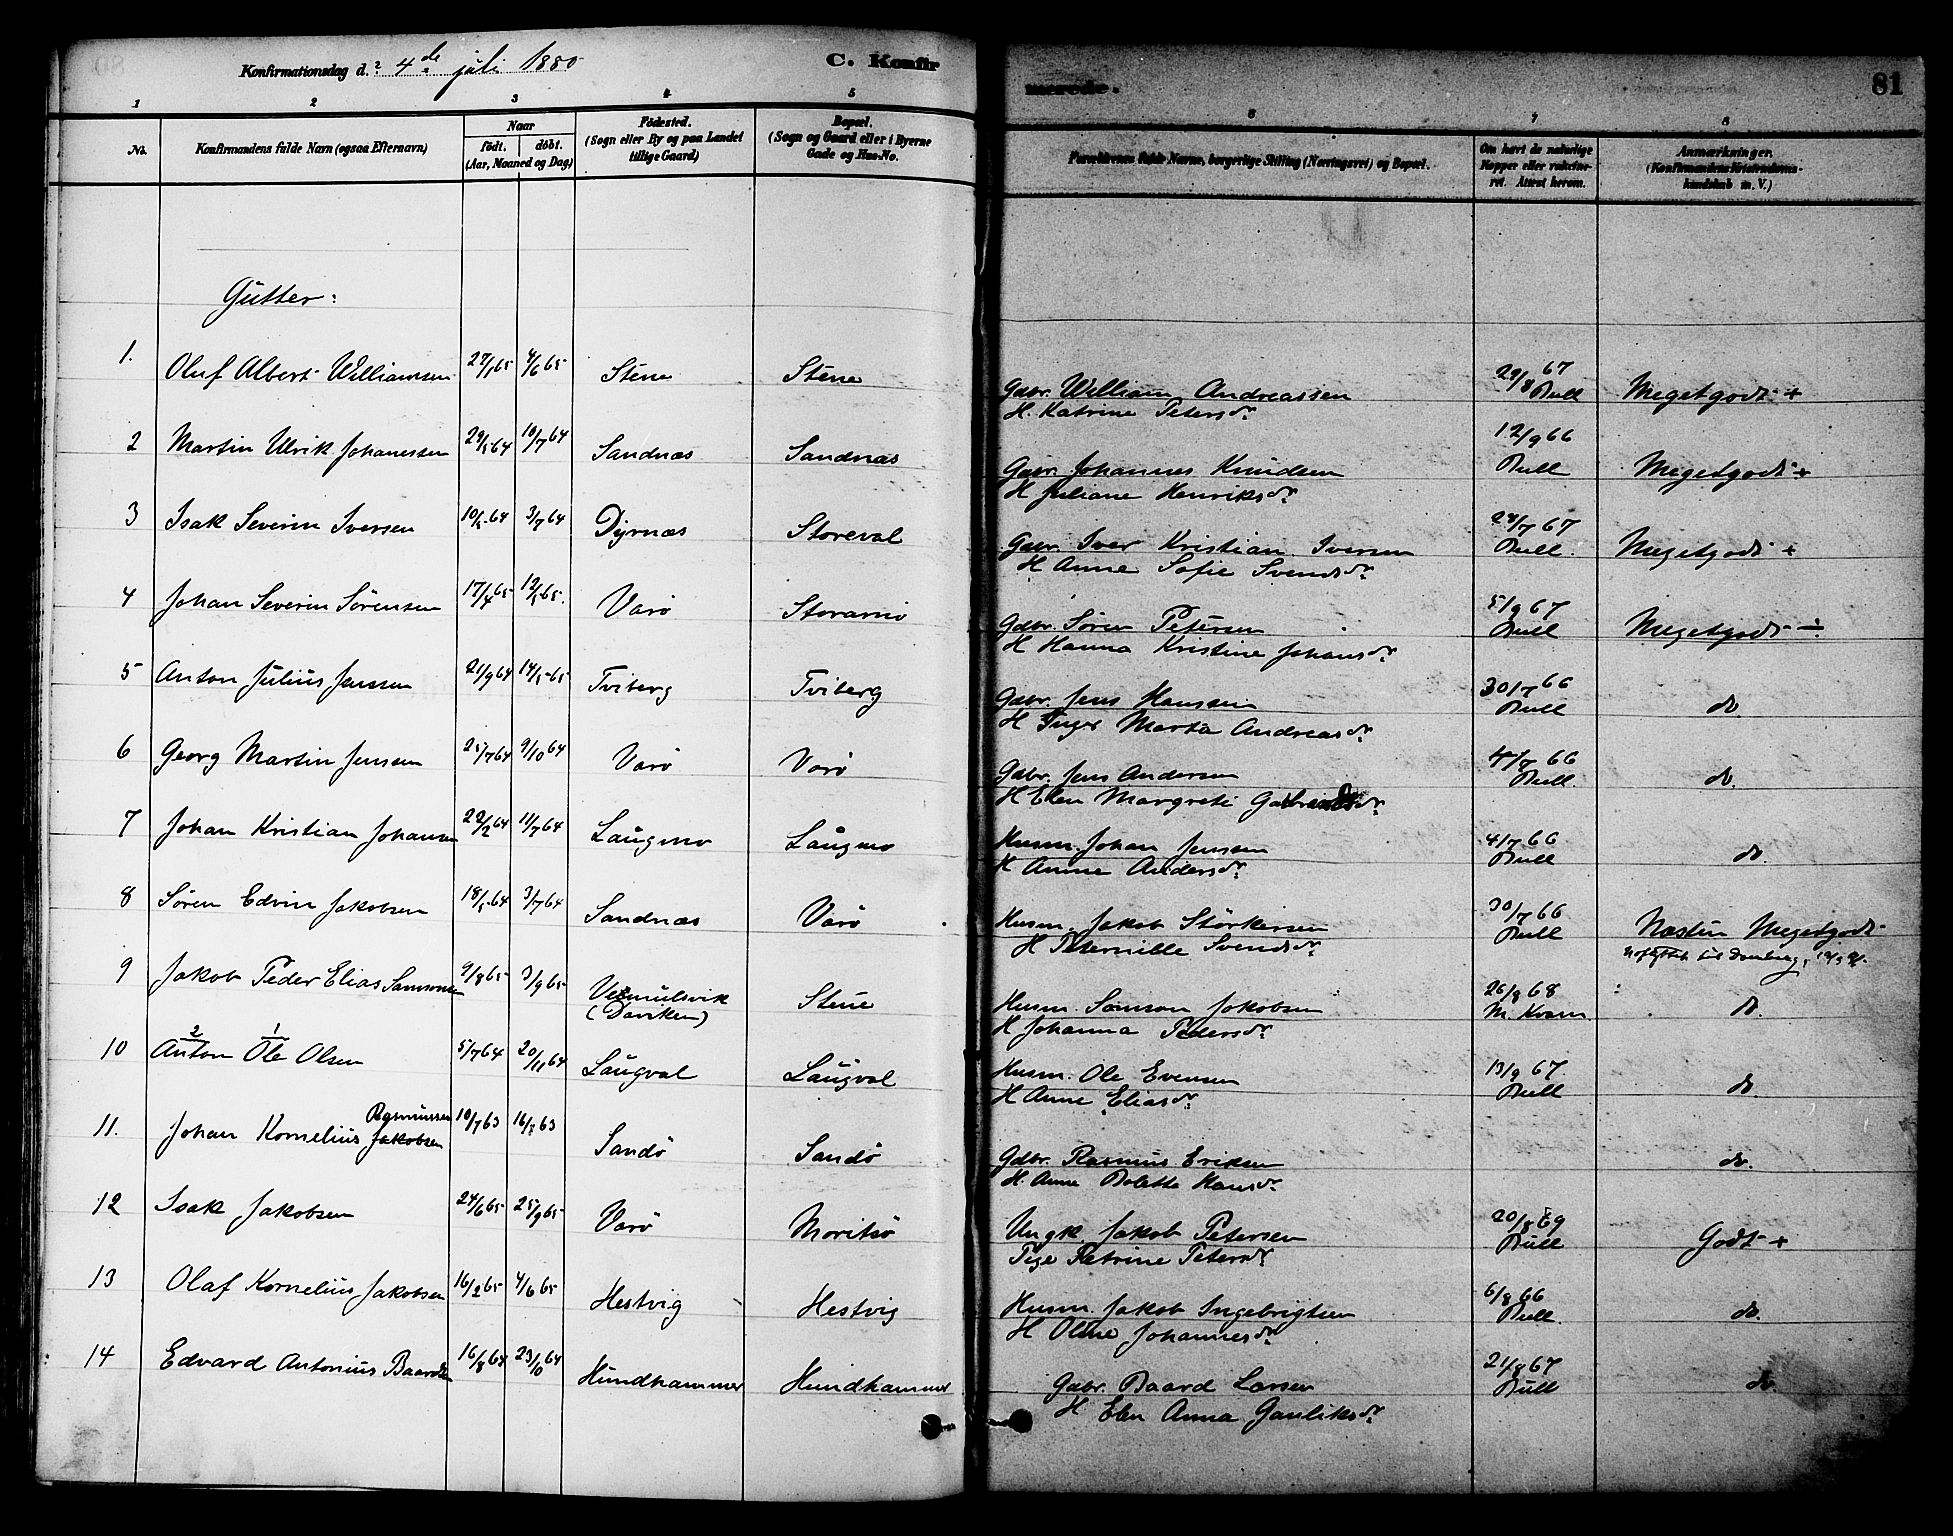 Konfirmationsdag d. 4de juli 1880
C. Konfirmerede.
81
1 2 3 4 5 6 7 8
No.
Konfirmandens fulde Navn (ogsaa Efternavn)
Naar
födt. döbt.
(Aar, Maaned og Dag)
Födested.
(Sogn eller By og paa Landet tillige Gaard)
Bopæl.
(Sogn og Gaard eller i Byerne Gade og Hus-No.
Forældrenes fulde Navne, borgerlige Stilling (Næringsvei) og Bopæl.
Om havt de naturlige Kopper eller vakcineret. Attest herom.
Anmærkninger.
(Konfirmandens Kristendomskundskab m. V.)
Gutter:
1. Oluf Albert Williamsen 27/1 65 4/6 65 Stene Stene Gdbr. William Andreassen 29/8 67 Bull Megetgodt +
H. Katrine Petersdr.
2 Martin Ulrik Johanessen 29/5 64 10/7 64 Sandnæs Sandnæs Gdbr. Johannes Knudsen 12/9 66 Bull Megetgodt +
H Juliane Henriksdr.
3 Isak Severin Iversen 10/5 64 3/7 64 Dyrnæs Storeval Gdbr. Iver Kristian Iversen 24/7 67 Bull. Megetgodt +
H Anne Sofie Svendsdr.
4 Johan Severin Sörensen 17/4 65 12/5 65. Varö Gdbr. Sören Petersen 5/9 67 Bull Megetgodt ÷
H Hanna Kristine Johansdr.
5 Anton Julius Jenssen 21/9 64 14/5 65 Tviberg Tviberg Gdbr. Jens Hanssen 30/7 66 Bull do.
H Inger Marta Andreasdr.
6 Georg Martin Jenssen 25/7 64 9/10 64 Varö Varö Gdbr. Jens Andersen 66 Bull. do.
H Elen Margrete
7 Johan Kristian Johansen 22/2 64 11/7 64 Laugmo Laugmo Husm. Johan Jenssen 4/7 66 Bull do.
H Anne Andersdr.
8 Sören Edvin Jakobsen 18/5 64 3/7 64 Sandnæs Varö Husm. Jakob Störkersen 30/7 66 Bull Næsten Megetgodt
H Peternille Svendsdr.
9 Jakob Peder Elias Samsonsen 9/8 65 3/9 65 Vemulsvik (Daviken) Stene Husm. Samson Jakobsen 26/8 68 M. Kvam do
H Johanna Pedersdr.
10 2 Anton 1 Ole Olsen 5/7 64 20/11 64 Laugval Laugval Husm. Ole Evensen 13/9 67 Bull do.
H Anne Eliasdr.
11. Johan Kornelius Jakobsen Rasmussen 10/7 63 16/8 63 Sandö Sandö Gdbr. Rasmus Eriksen do.
H. Anne Bolette Hansdr.
12 Isak Jakobsen 24/6 65 25/9 65 Varö Moritsö Ungk. Jakob Petersen 20/8 69 Bull Godt +
Pige Katrine Petersdr.
13 Olaf Kornelius Jakobsen 16/2 65 4/6 65 Hestvig Hestvig Husm. Jakob Ingebrigtsen 6/8 66 Bull. do.
H Oline Johannesdr.
14 Edvard Antonius Baardsen 16/8 64 23/10 64 Hundhammer Hundhammer Gdbr. Baard Larsen 21/8 67 Bull do
H Elen Anna Gauliksdr.